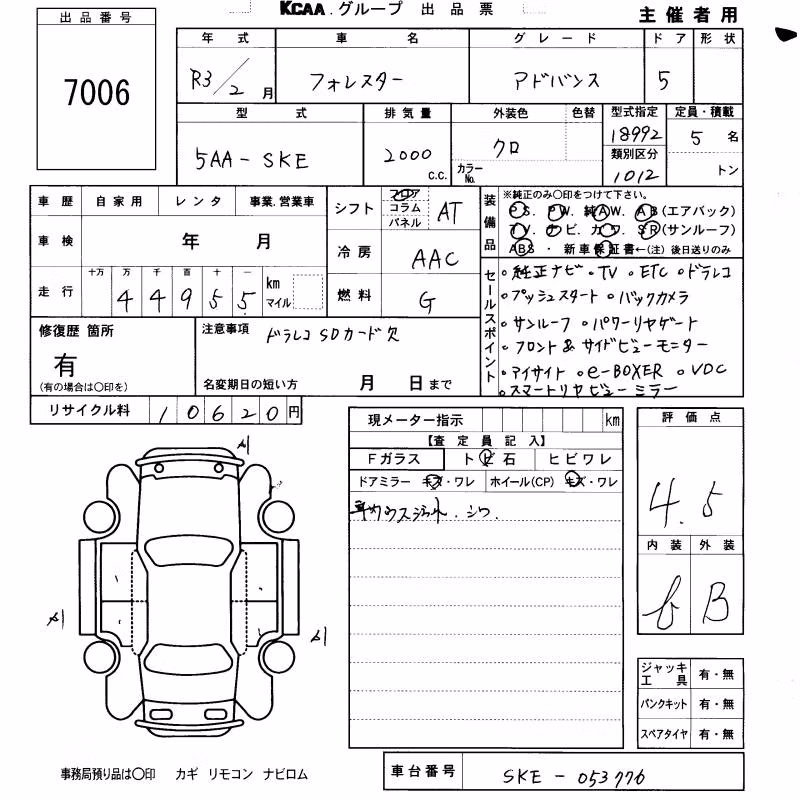 KCAA.グループ 出品票
主催者用
出品番号
7006
年式 車名 グレード ドア 形状
R3/2月 フォレスター アドバンス 5
型式 排気量 外装色 色替 型式指定 定員・積載
5AA-SKE 2000 c.c. クロ カラーNo. 18992 5名
類別区分
1012 トン
車歴 自家用 レンタ 事業.営業車
車検 年 月
走行 十万 万 千 百 十 一 km マイル
44955
シフト フロア コラム パネル AT
冷房 AAC
燃料 G
装備品
※純正のみ〇印をつけて下さい。
P S. P W. 純A W. A B(エアバック)
T V. ナ ビ. カ ワ. S R(サンルーフ)
ABS・ 新車保証書←(注)後日送りのみ
セールスポイント
・純正ナビ ・TV ・ETC ・ドラレコ
・プッシュスタート ・バックカメラ
・サンルーフ ・パワーリヤゲート
・フロント&サイドビューモニター
・アイサイト ・e-BOXER ・VDC
・スマートリヤビューミラー
修復歴 箇所
有
(有の場合は〇印を)
注意事項 ドラレコSDカード欠
名変期日の短い方 月 日まで
リサイクル料 10620円
現メーター指示 km
【査定員記入】
Fガラス トビ石 ヒビワレ
ドアミラー キズ・ワレ ホイール(CP) キズ・ワレ
シワ.
評価点
4.5
内装 外装
b B
ジャッキ工具 有・無
パンクキット 有・無
スペアタイヤ 有・無
事務局預り品は〇印 カギ リモコン ナビロム
車台番号 SKE-053776